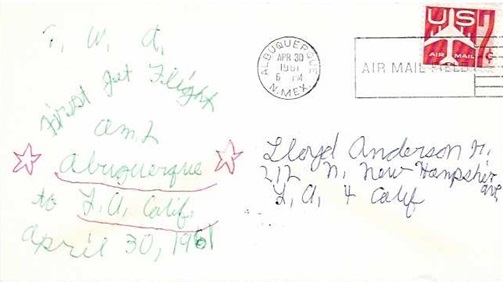 T. W. A.
First Jet Flight
am2
Albuquerque
to L.A. Calif.
April 30, 1961
ALBUQUERQUE
APR 30
1961
6 PM
N. MEX.
AIR MAIL
US 7c
AIR MAIL
Lloyd Anderson Jr.
212 N. New Hampshire
ave
L, A, 4 Calif